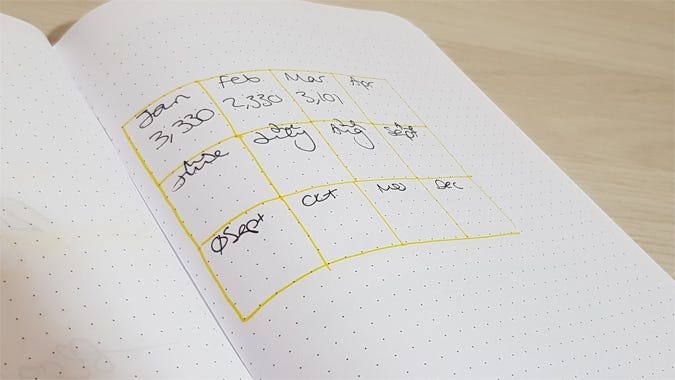 Jan Feb Mar Apr
3,330 2,330 3,101
June July Aug Sept
Sept Oct Nov Dec